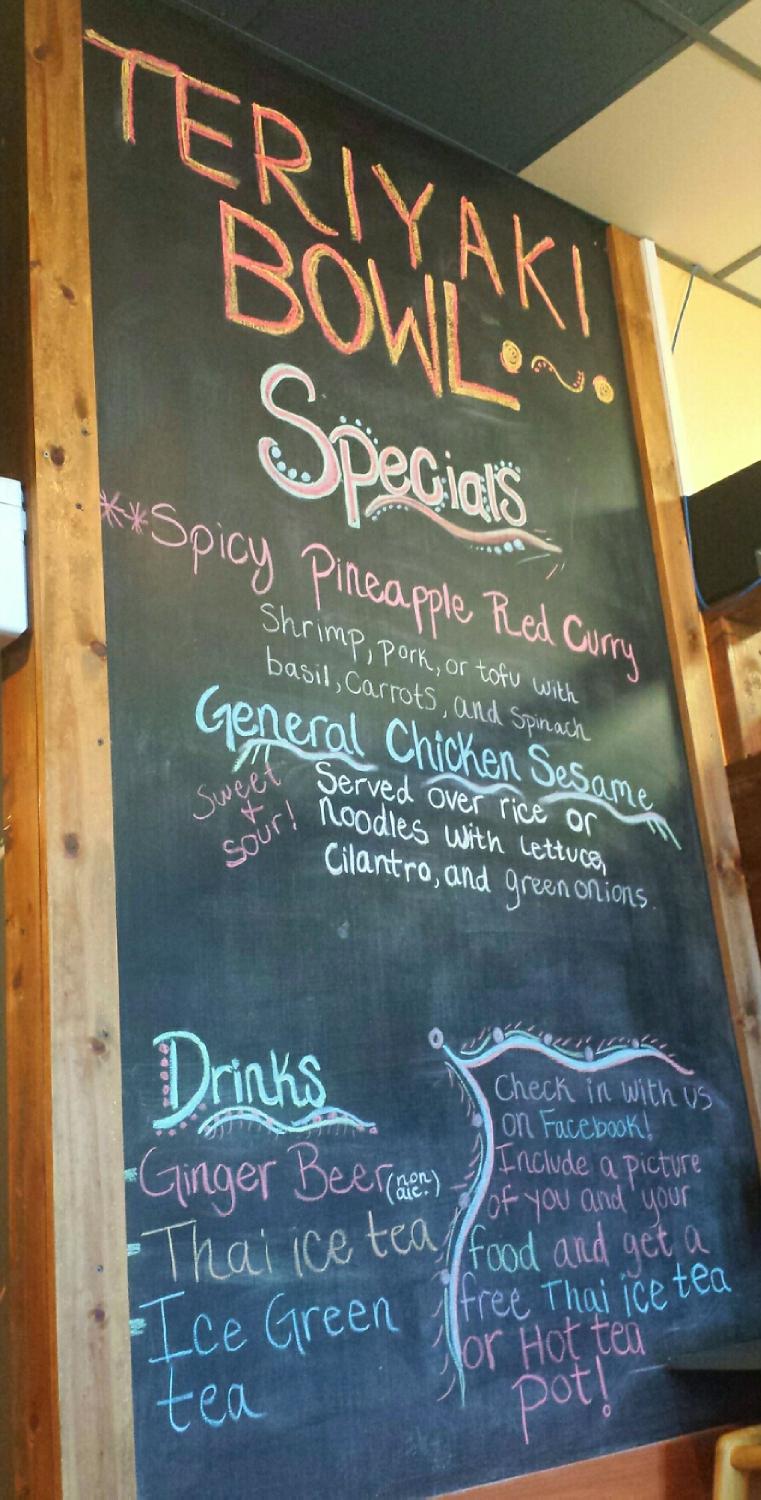 TERIYAKI
BOWL
Specials
**Spicy Pineapple Red Curry
Shrimp, pork, or tofu with
basil, Carrots, and Spinach
General Chicken Sesame
Sweet
+
sour!
Served over rice or
noodles with lettuce,
Cilantro, and green onions.
Drinks
- Ginger Beer (non alc.)
- Thai ice tea
- Ice Green
tea
Check in with us
on Facebook!
Include a picture
of you and your
food and get a
free Thai ice tea
or Hot tea
pot!